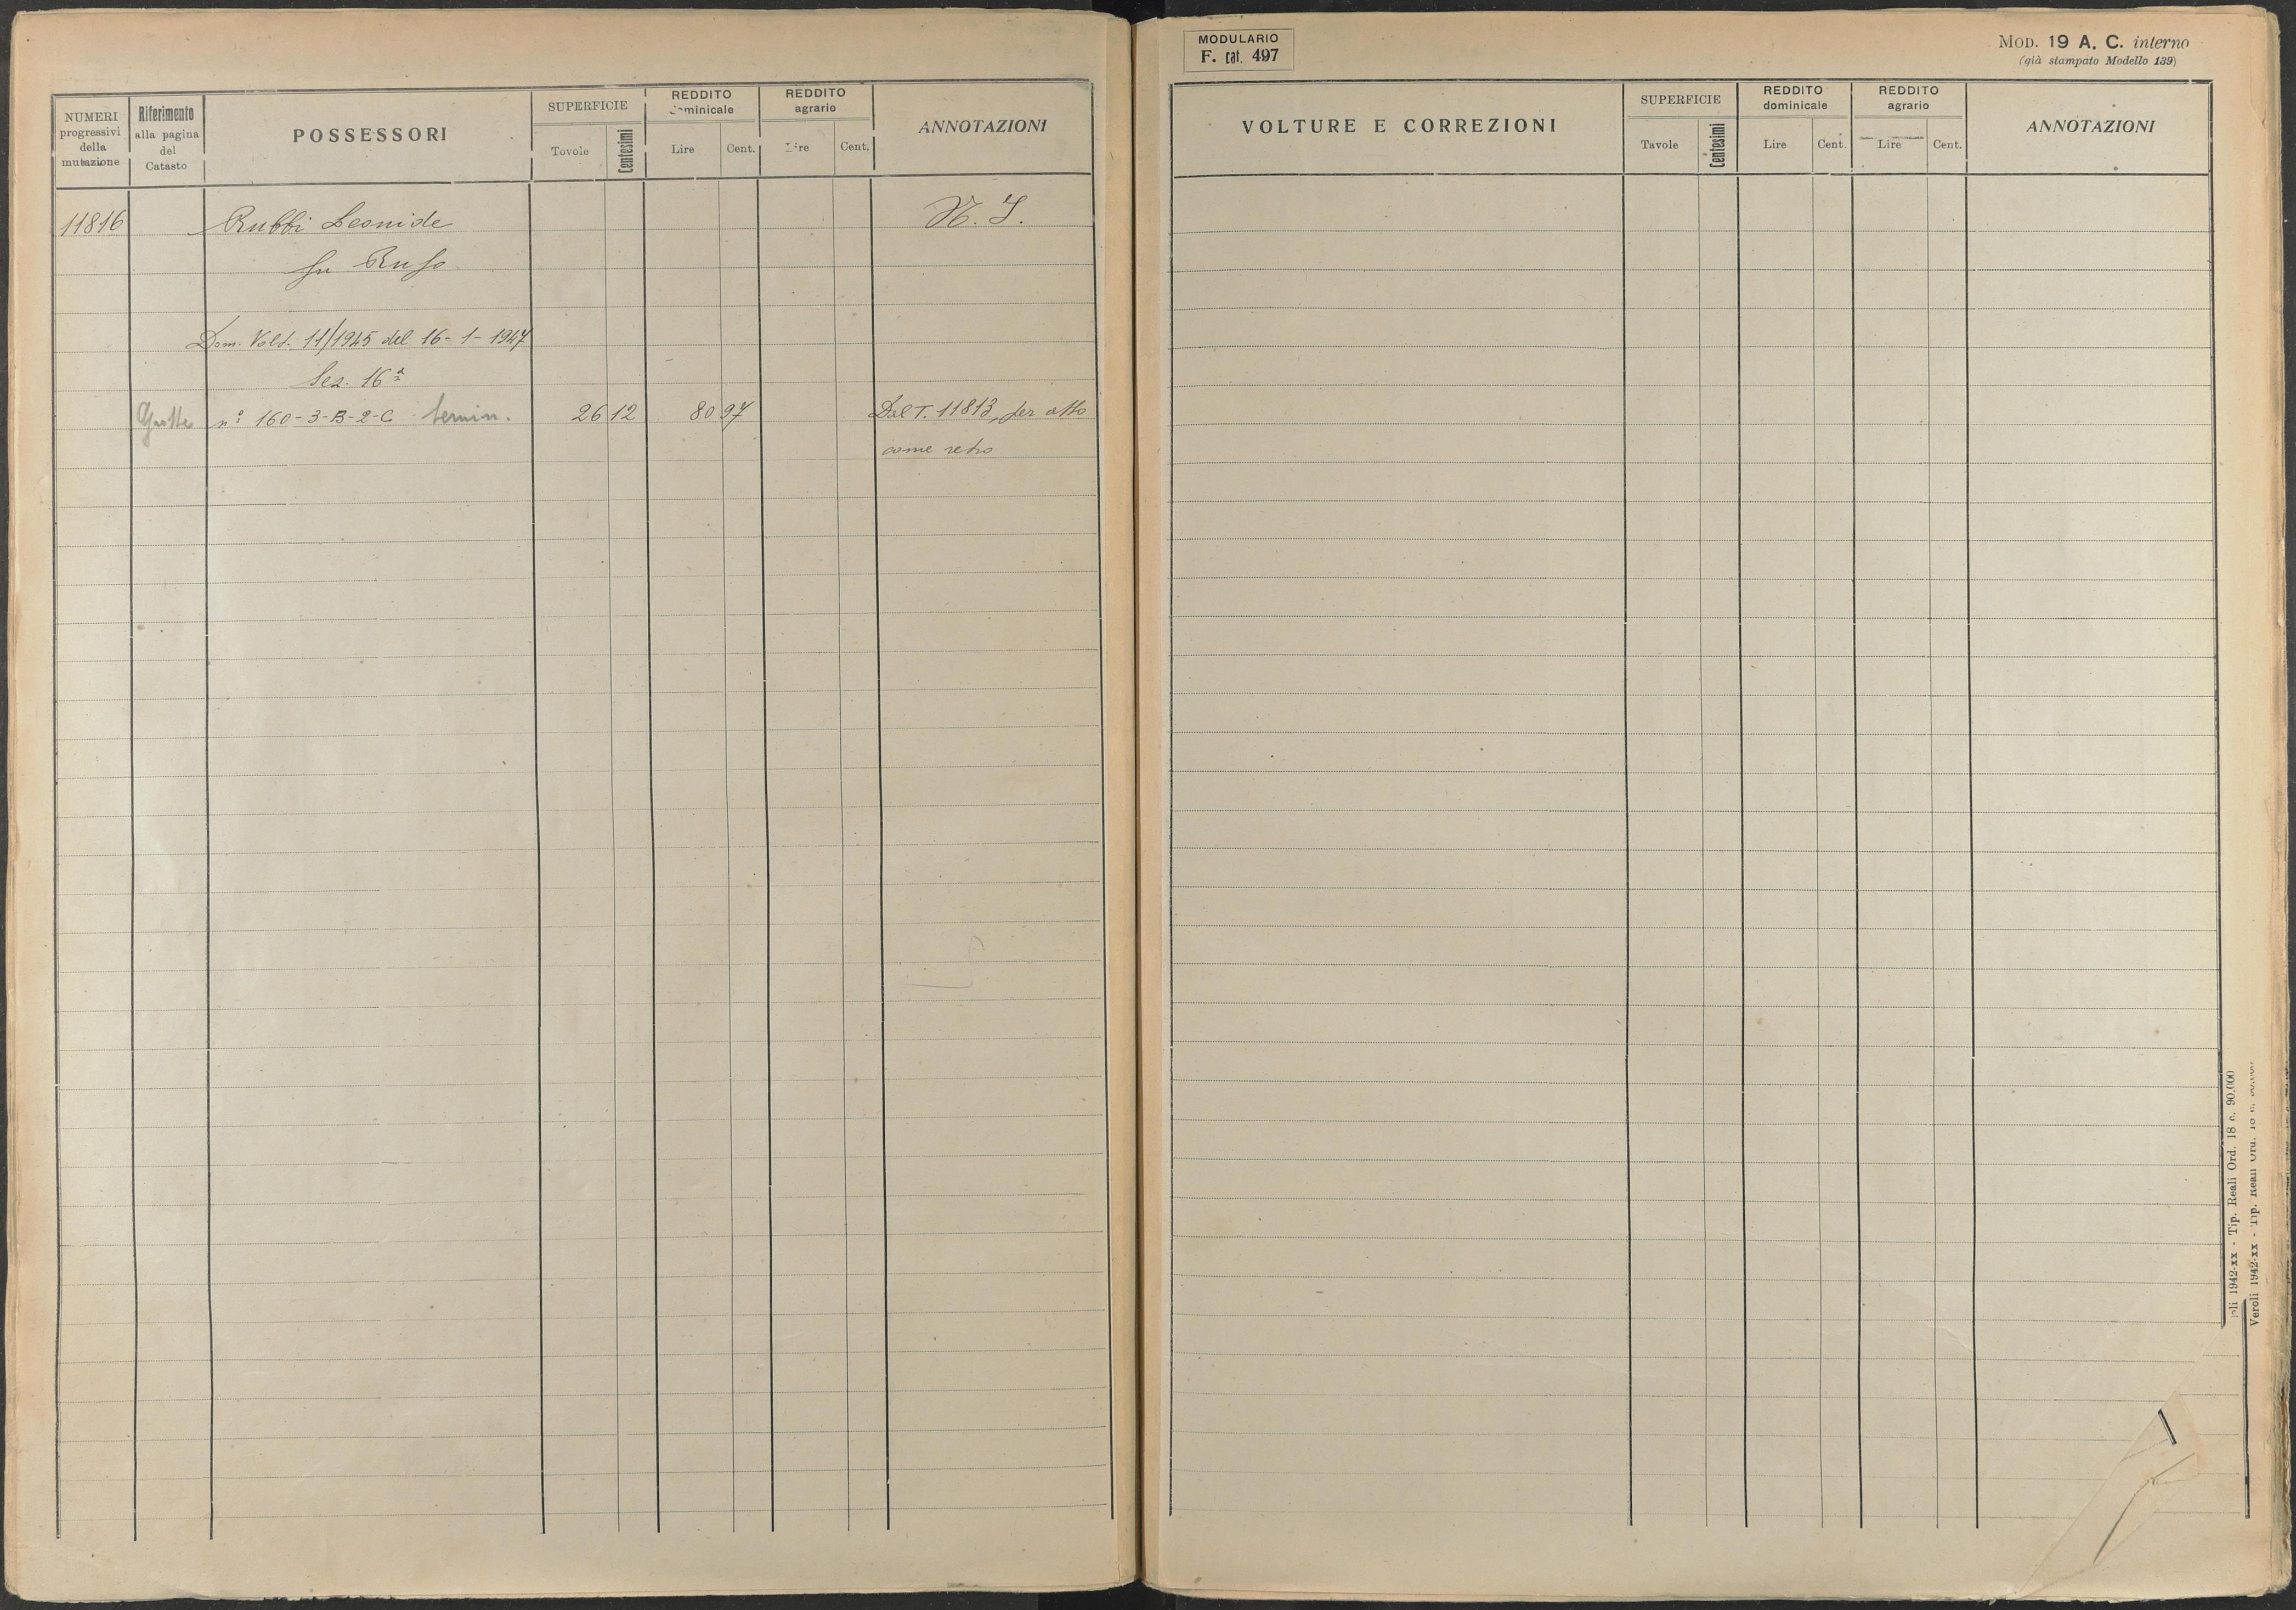 NUMERI
progressivi
della
mutazione
Riferimento
alla pagina
del
Catasto
POSSESSORI
SUPERFICIE
Tovole
Centesimi
REDDITO
dominicale
Lire
Cent.
REDDITO
agrario
Lire
Cent.
ANNOTAZIONI
11816
Rubbi Leonide
N. I.
fu Rufo
Dom. Volt. 11/1945 del 16-1-1947
Sez. 16ª
n° 160-3-B-2-C semin. 26 12 80 97 Dal T. 11813, per atto
come retro
MODULARIO
F. cat. 497
MOD. 19 A. C. interno
(già stampato Modello 139)
VOLTURE E CORREZIONI
SUPERFICIE
Tavole
Centesimi
REDDITO
dominicale
Lire
Cent.
REDDITO
agrario
Lire
Cent.
ANNOTAZIONI
oli 1942-XX - Tip. Reali Ord. 18 c. 90.000
Veroli 1942-XX - Tip. Reali Ord. 18